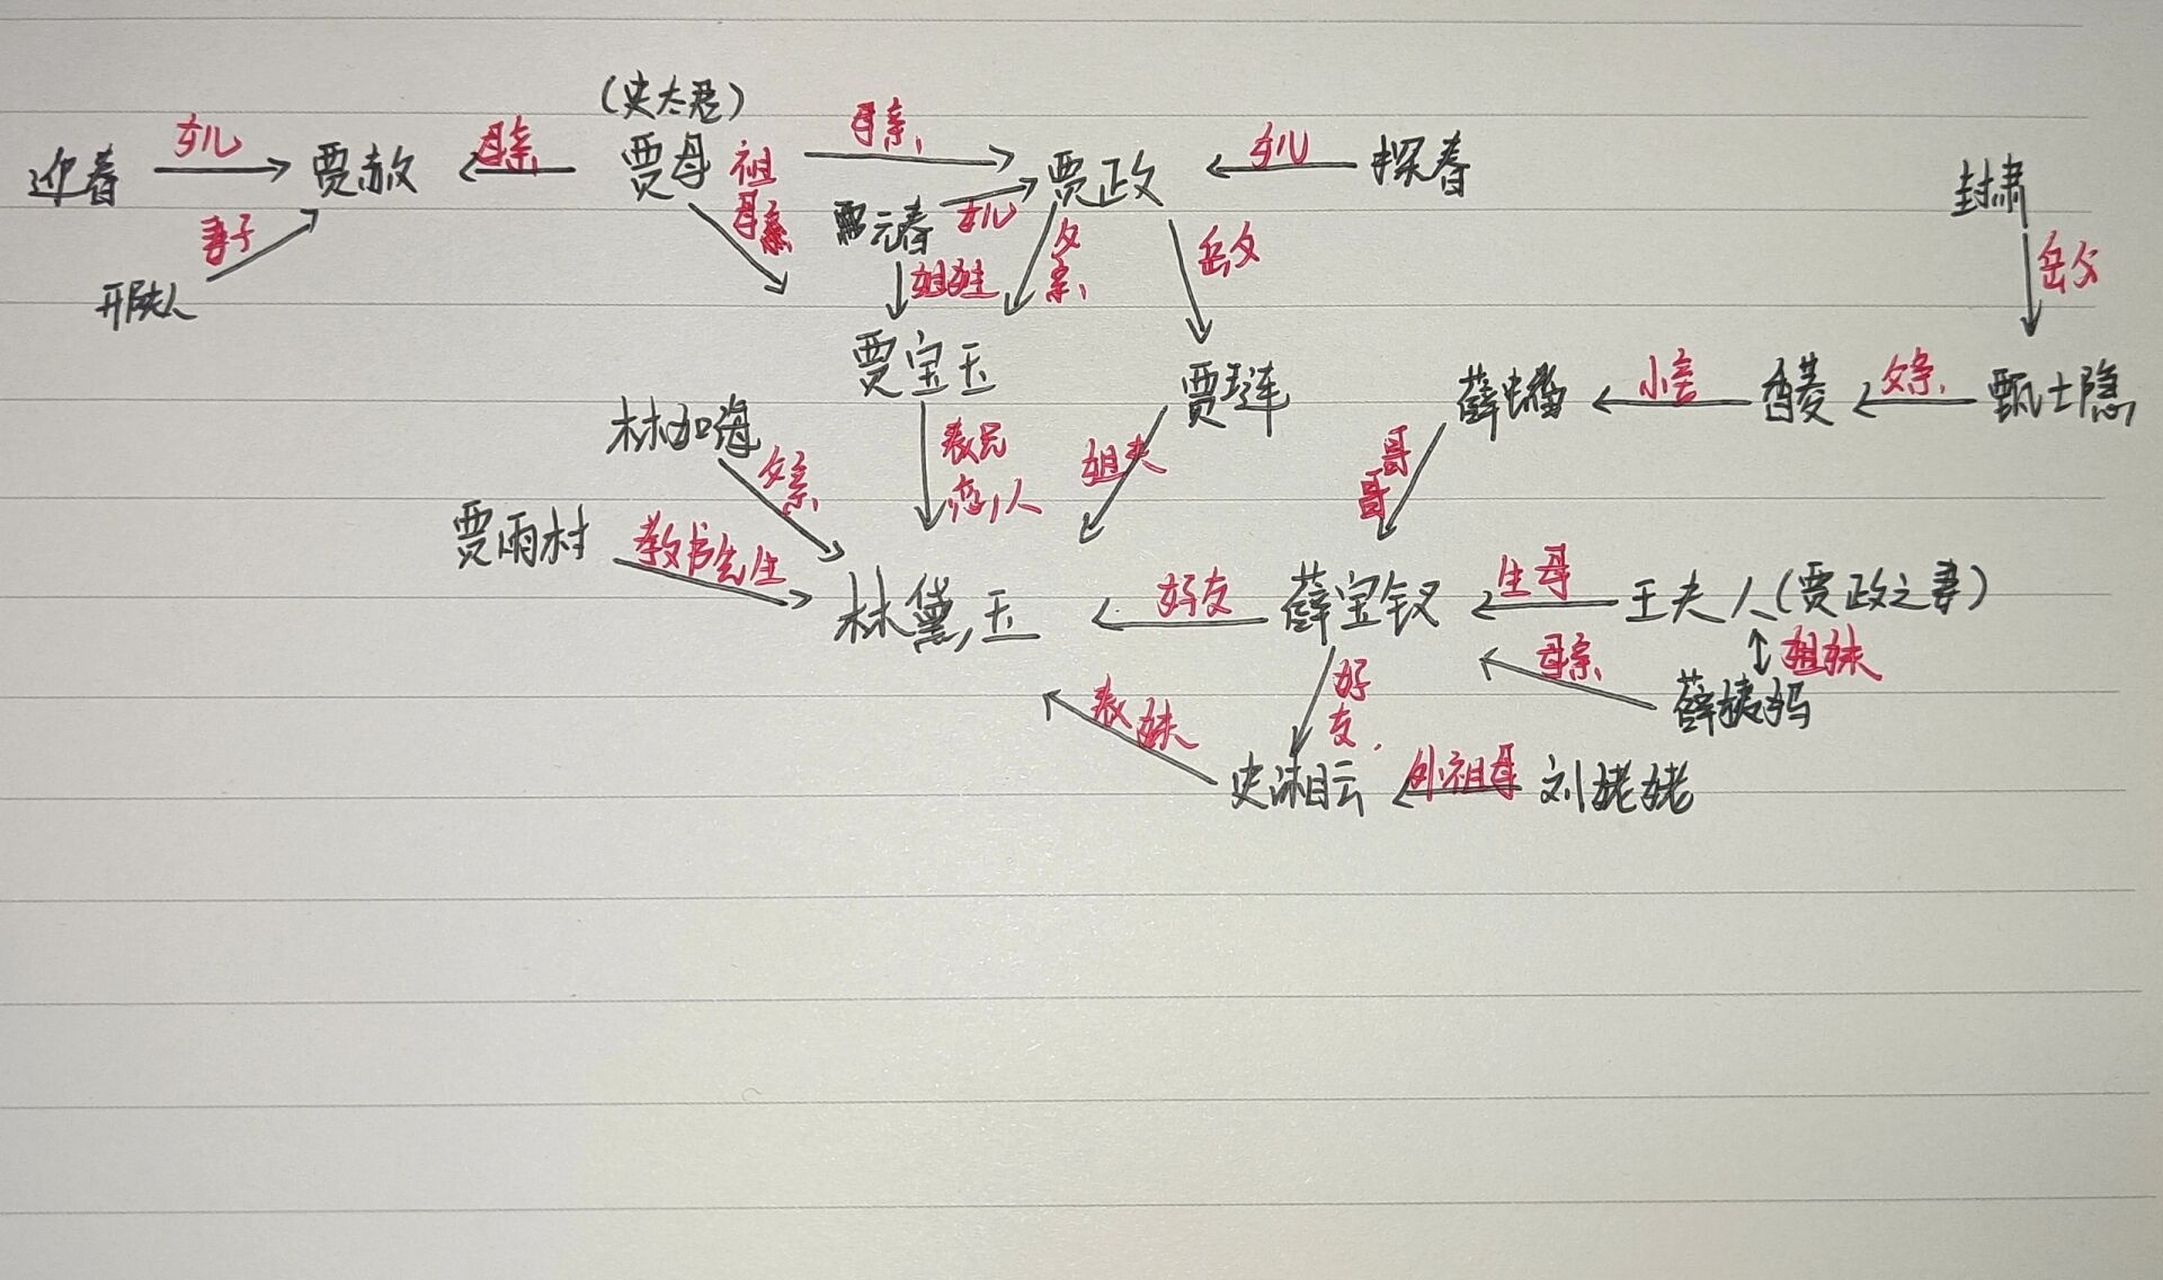 (史太君)
迎春 女儿 贾赦 母亲 贾母 祖母亲 母亲 贾政 女儿 探春 封肃
妻子 贾元春 女儿 父亲 岳父 岳父
邢夫人 姐姐
贾宝玉 贾琏 薛蟠 小妾 香菱 父亲 甄士隐
林如海 父亲 表兄 恋人 姐夫 哥哥
贾雨村 教书先生 林黛玉 好友 薛宝钗 生母 王夫人(贾政之妻)
母亲 姐妹
表妹 好友 薛姨妈
史湘云 外祖母 刘姥姥